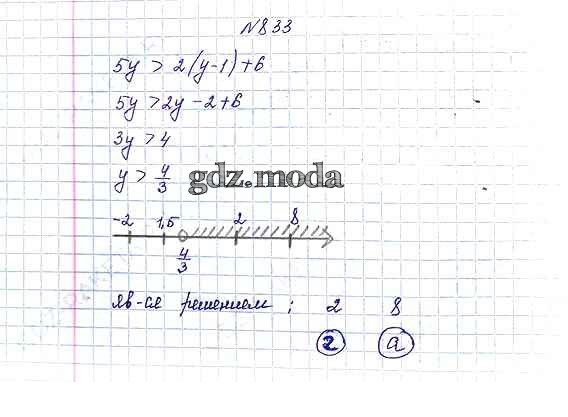 №833
5y > 2(y-1)+6
5y > 2y - 2+6
3y > 4
y > 4/3
gdz.moda
-2 1,5 2 8
4/3
яв-ся решением ; 2 8
г а